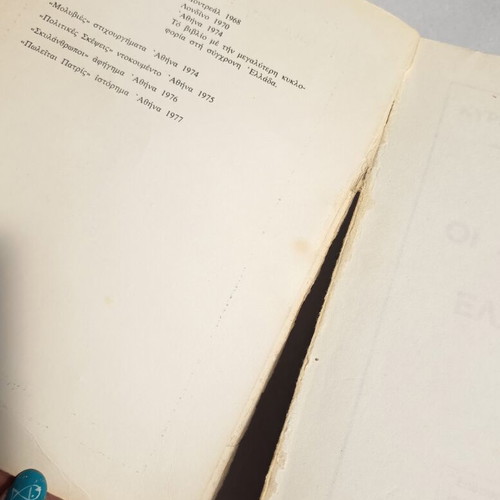 Μοντρεάλ 1968
Λονδίνο 1970
Ἀθήνα 1974
Τὸ βιβλίο μὲ τὴν μεγαλύτερη κυκλο-
φορία στὴ σύγχρονη Ἑλλάδα.
«Μολυβιές» στιχουργήματα Ἀθήνα 1974
«Πολιτικὲς Σκέψεις» ντοκουμέντο Ἀθήνα 1975
«Σκυλάνθρωποι» ἀφήγημα Ἀθήνα 1976
«Πωλεῖται Πατρίς» ἱστόρημα Ἀθήνα 1977